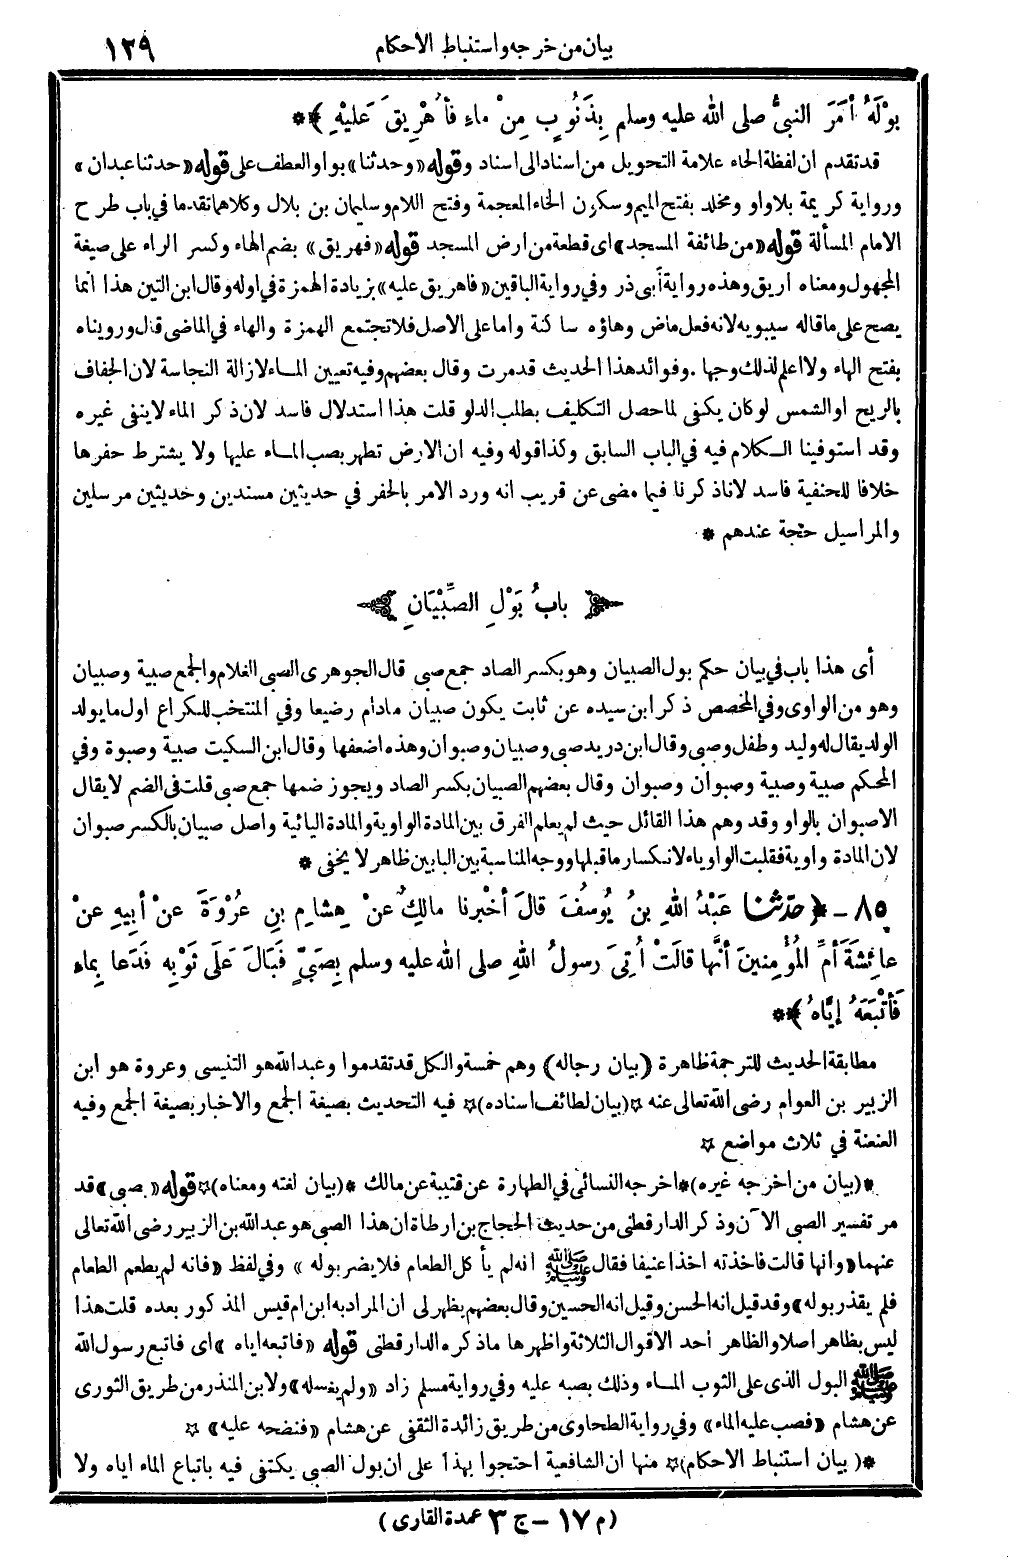 بيان من خرجه واستنباط الاحكام ١٢٩
بَوْلَهُ أمَرَ النبيُّ صلى الله عليه وسلم بِذَنُوبٍ مِنْ ماءٍ فَأُهْرِيقَ عَلَيْهِ ﴾ **
قد تقدم ان لفظة الحاء علامة التحويل من اسناد الى اسناد وقوله «وحدثنا» بواو العطف على قوله «حدثنا عبدان»
ورواية كريمة بلا واو ومخلد بفتح الميم وسكون الخاء المعجمة وفتح اللام وسليمان بن بلال وكلاهما تقدما في باب طرح
الامام المسألة قوله «من طائفة المسجد» اى قطعة من ارض المسجد قوله «فهريق» بضم الهاء وكسر الراء على صيغة
المجهول ومعناه اريق وهذه رواية أبى ذر وفي رواية الباقين «فاهريق عليه» بزيادة الهمزة في اوله وقال ابن التين هذا انما
يصح على ما قاله سيبويه لانه فعل ماض وهاؤه ساكنة واما على الاصل فلا تجتمع الهمزة والهاء في الماضى قال ورويناه
بفتح الهاء ولا اعلم لذلك وجها . وفوائد هذا الحديث قد مرت وقال بعضهم وفيه تعيين المـاء لازالة النجاسة لان الجفاف
بالريح او الشمس لو كان يكفى لما حصل التكليف بطلب الدلو قلت هذا استدلال فاسد لان ذكر الماء لا ينفى غيره
وقد استوفينا الـكلام فيه في الباب السابق وكذا قوله وفيه ان الارض تطهر بصب المـاء عليها ولا يشترط حفرها
خلافا للحنفية فاسد لانا ذكرنا فيما مضى عن قريب انه ورد الامر بالحفر في حديثين مسندين وحديثين مرسلين
والمراسيل حجة عندهم *
بابُ بَوْلِ الصِّبْيَانِ
أى هذا باب في بيان حكم بول الصبيان وهو بكسر الصاد جمع صبى قال الجوهرى الصبى الغلام والجمع صبية وصبيان
وهو من الواوى وفي المخصص ذكر ابن سيده عن ثابت يكون صبيان مادام رضيعا وفي المنتخب للكراع اول ما يولد
الولد يقال له وليد وطفل وصبى وقال ابن دريد صبى وصبيان وصبوان وهذه اضعفها وقال ابن السكيت صبية وصبوة وفي
المحكم صبية وصبية وصبوان وصبوان وقال بعضهم الصبيان بكسر الصاد ويجوز ضمها جمع صبى قلت في الضم لا يقال
الاصبوان بالواو وقد وهم هذا القائل حيث لم يعلم الفرق بين المادة الواوية والمادة اليائية واصل صبيان بالكسر صبوان
لان المادة واوية فقلبت الواو ياء لانكسار ما قبلها ووجه المناسبة بين البابين ظاهر لا يخفى *
٨٥ - ﴿ حَدَّثنا عَبْدُ اللهِ بنُ يُوسُفَ قالَ أخْبرنا مالِكٌ عنْ هِشامِ بنِ عُرْوَةَ عنْ أبِيهِ عنْ
عائِشَةَ أمِّ المُؤْمِنِينَ أنَّها قالَتْ أُتِىَ رسولُ اللهِ صلى الله عليه وسلم بِصَبِيٍّ فَبَالَ عَلَى ثَوْبِهِ فَدَعا بِماءٍ
فَأَتْبَعَهُ إيَّاهُ ﴾ **
مطابقة الحديث للترجمة ظاهرة (بيان رجاله) وهم خمسة والكل قد تقدموا وعبد الله هو التنيسى وعروة هو ابن
الزبير بن العوام رضى الله تعالى عنه ☆ (بيان لطائف اسناده) ☆ فيه التحديث بصيغة الجمع والاخبار بصيغة الجمع وفيه
العنعنة في ثلاث مواضع ☆
*(بيان من اخرجه غيره)* اخرجه النسائى في الطهارة عن قتيبة عن مالك *(بيان لغته ومعناه)☆ قوله «بصبى» قد
مر تفسير الصبى الآن وذكر الدارقطنى من حديث الحجاج بن ارطاة ان هذا الصبى هو عبد الله بن الزبير رضى الله تعالى
عنهما «وانها قالت فاخذته اخذا عنيفا فقال ﷺ انه لم يأكل الطعام فلا يضر بوله» وفي لفظ «فانه لم يطعم الطعام
فلم يقذر بوله» وقد قيل انه الحسن وقيل انه الحسين وقال بعضهم يظهر لى ان المراد به ابن ام قيس المذكور بعده قلت هذا
ليس بظاهر اصلا والظاهر أحد الاقوال الثلاثة واظهرها ما ذكره الدارقطنى قوله «فاتبعه اياه» اى فاتبع رسول الله
ﷺ البول الذى على الثوب المـاء وذلك بصبه عليه وفي رواية مسلم زاد «ولم يغسله» ولابن المنذر من طريق الثورى
عن هشام «فصب عليه الماء» وفي رواية الطحاوى من طريق زائدة الثقفى عن هشام «فنضحه عليه» ☆
*(بيان استنباط الاحكام)☆ منها ان الشافعية احتجوا بهذا على ان بول الصبى يكتفى فيه باتباع الماء اياه ولا
(م ١٧ - ج ٣ عمدة القارى)